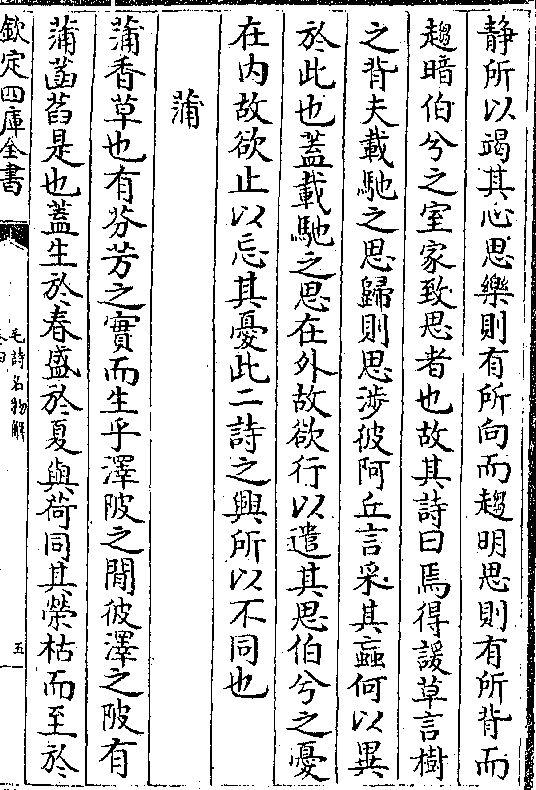 静所以竭其心思樂則有所向而趨明思則有所背而
趨暗伯兮之室家致思者也故其詩曰焉得諼草言樹
之背夫載馳之思歸則思涉彼阿丘言采其蝱何以異
於此也蓋載馳之思在外故欲行以遣其思伯兮之憂
在内故欲止以忘其憂此二詩之興所以不同也
蒲
蒲香草也有芬芳之實而生乎澤陂之間彼澤之陂有
蒲菡萏是也蓋生於春盛於夏與荷同其榮枯而至於
欽定四庫全書
毛詩名物解
五